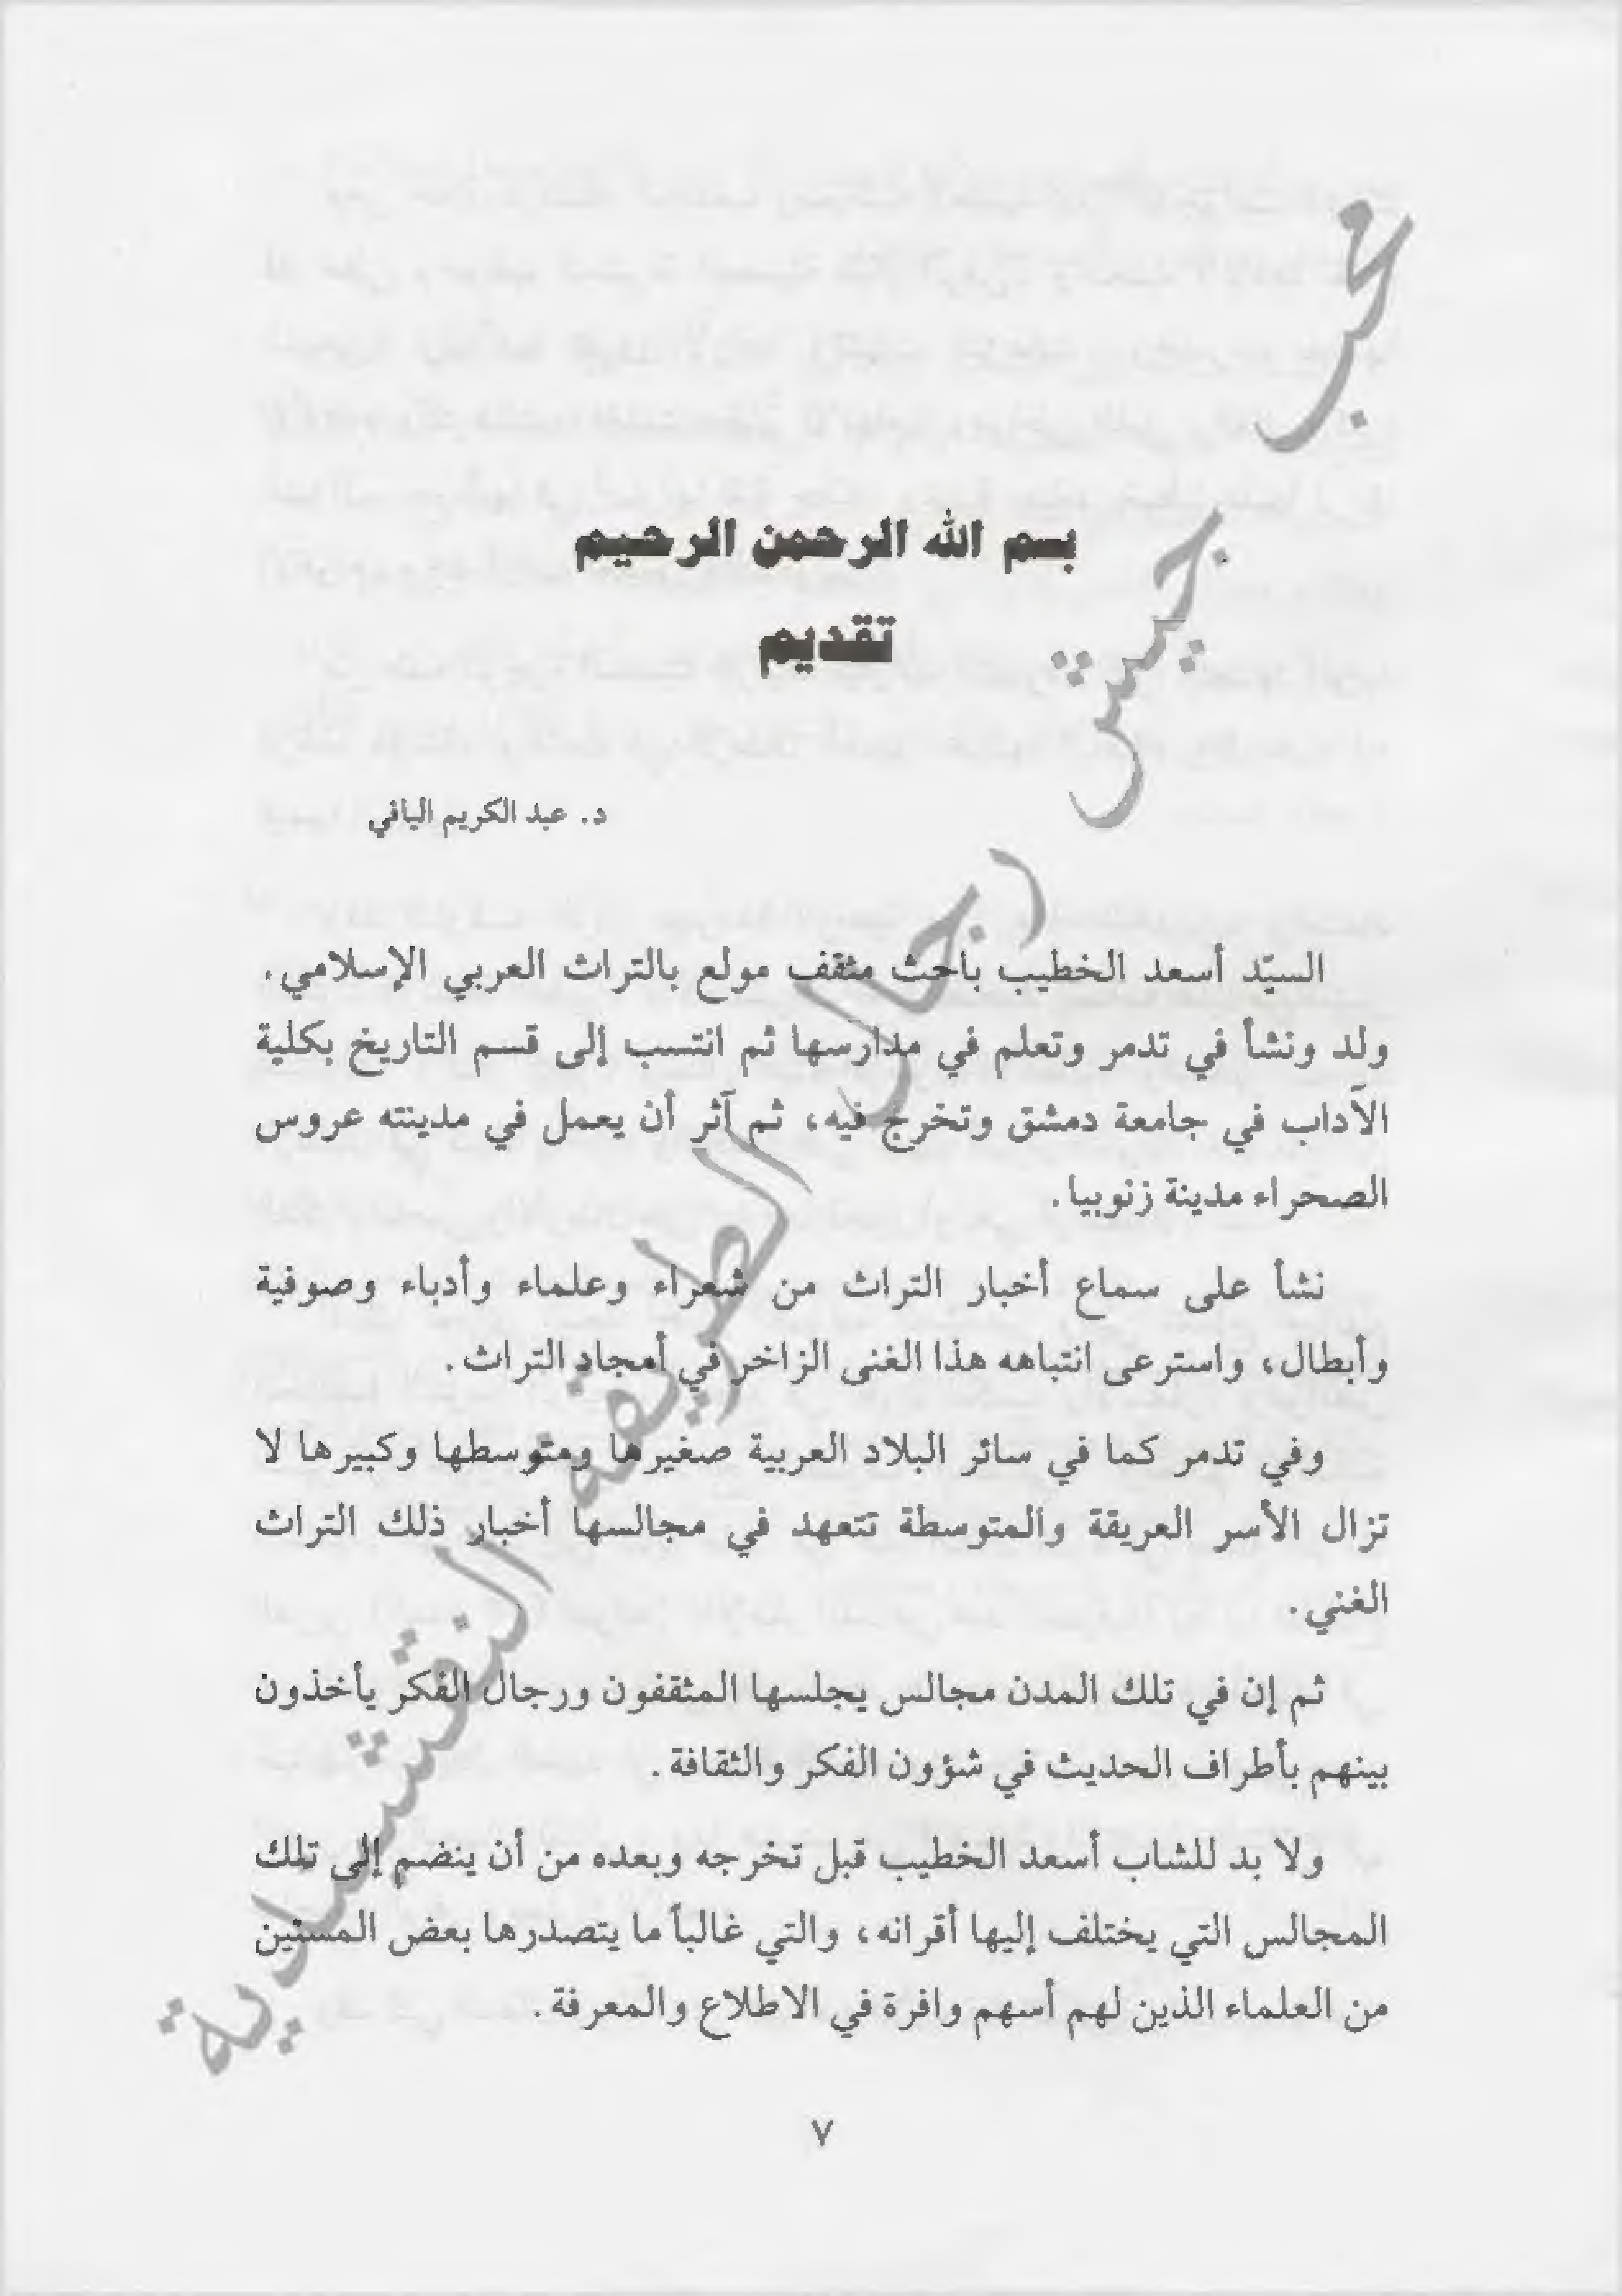 بسم الله الرحمن الرحيم
تقديم
د. عبد الكريم اليافي
السيّد أسعد الخطيب باحث مثقف مولع بالتراث العربي الإسلامي،
ولد ونشأ في تدمر وتعلم في مدارسها ثم انتسب إلى قسم التاريخ بكلية
الآداب في جامعة دمشق وتخرج فيه، ثم آثر أن يعمل في مدينته عروس
الصحراء مدينة زنوبيا.
نشأ على سماع أخبار التراث من شعراء وعلماء وأدباء وصوفية
وأبطال، واسترعى انتباهه هذا الغنى الزاخر في أمجاد التراث.
وفي تدمر كما في سائر البلاد العربية صغيرها ومتوسطها وكبيرها لا
تزال الأسر العريقة والمتوسطة تتعهد في مجالسها أخبار ذلك التراث
الغني.
ثم إن في تلك المدن مجالس يجلسها المثقفون ورجال الفكر يأخذون
بينهم بأطراف الحديث في شؤون الفكر والثقافة.
ولا بد للشاب أسعد الخطيب قبل تخرجه وبعده من أن ينضم إلى تلك
المجالس التي يختلف إليها أقرانه، والتي غالباً ما يتصدرها بعض المسنين
من العلماء الذين لهم أسهم وافرة في الاطلاع والمعرفة.
٧
جيش رجال الطريقة النقشبندية